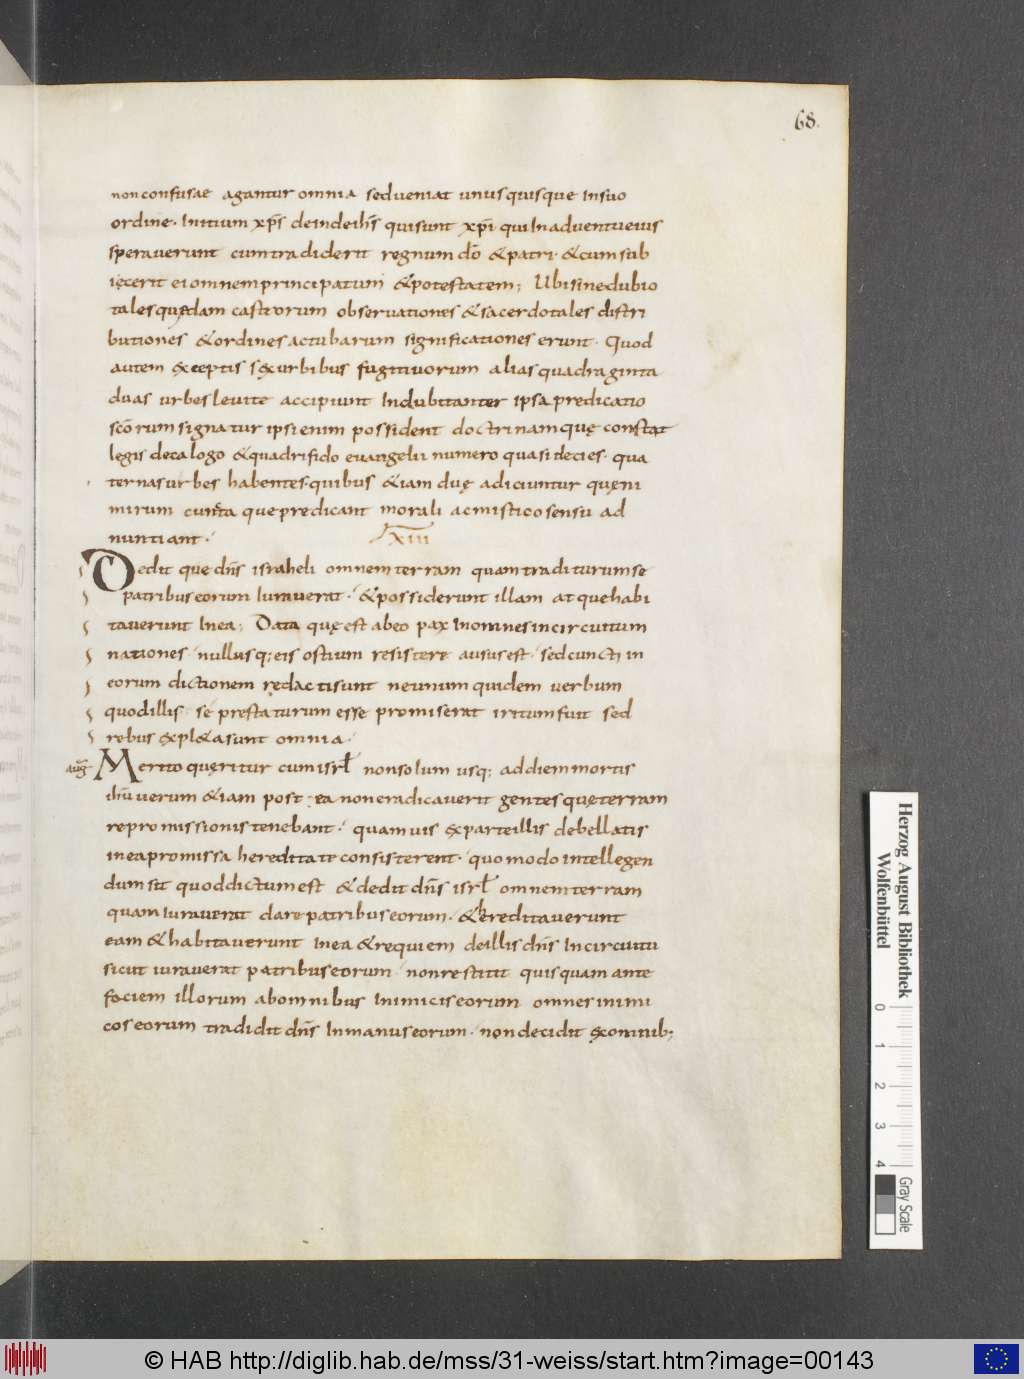 68.
non confusae agantur omnia sed ueniat unus quisque In suo
ordine · Initium xp̄s deinde ih̄s qui sunt xp̄i · qui In aduentu eius
sperauerunt cum tradiderit regnum dō & patri · & cum sub
iecerit ei omnem principatum & potestatem; Ubi sine dubio
tales quędam castrorum obseruationes & sacerdotales distri
butiones & ordines ac tubarum significationes erunt · Quod
autem exceptis sex urbibus fugitiuorum alias quadraginta
duas urbes leuite accipiunt Indubitanter ipsa predicatio
sc̄orum signatur ipsi enim possident doctrinam quę constat
legis decalogo & quadrifido euangelii numero quasi decies · qua
ternas urbes habentes quibus &iam duę adiciuntur quę ni
mirum cuncta que predicant morali ac mistico sensu ad
nuntiant · XIII
Dedit que dn̄s israheli omnem terram quam traditurum se
patribus eorum Iurauerat · & possiderunt illam atque habi
tauerunt In ea; Data quę est ab eo pax In omnes in circuitum
nationes nullusq; eis ostium resistere ausus est · sed cuncti in
eorum dictionem redacti sunt ne unum quidem uerbum
quod illis se prestaturum esse promiserat iritum fuit sed
rebus expl&a sunt omnia ·
auḡ Merito quęritur cum isrl̄ non solum usq; ad diem mortis
ih̄u uerum &iam post ea non eradicauerit gentes quę terram
repromissionis tenebant · quamuis ex parte illis debellatis
in ea promissa hereditate consisterent · quomodo intellegen
dum sit quod dictum est & dedit dn̄s isrl̄ omnem terram
quam Iurauerat dare patribus eorum · & hereditauerunt
eam & habitauerunt In ea & requiem de illis dn̄s In circuitu
sicut iurauerat patribus eorum non restitit quisquam ante
faciem illorum ab omnibus Inimicis eorum omnes inimi
cos eorum tradidit dn̄s In manus eorum · non decidit ex omnib;
Herzog August Bibliothek
Wolfenbüttel
0 1 2 3 4
Gray Scale
© HAB http://diglib.hab.de/mss/31-weiss/start.htm?image=00143